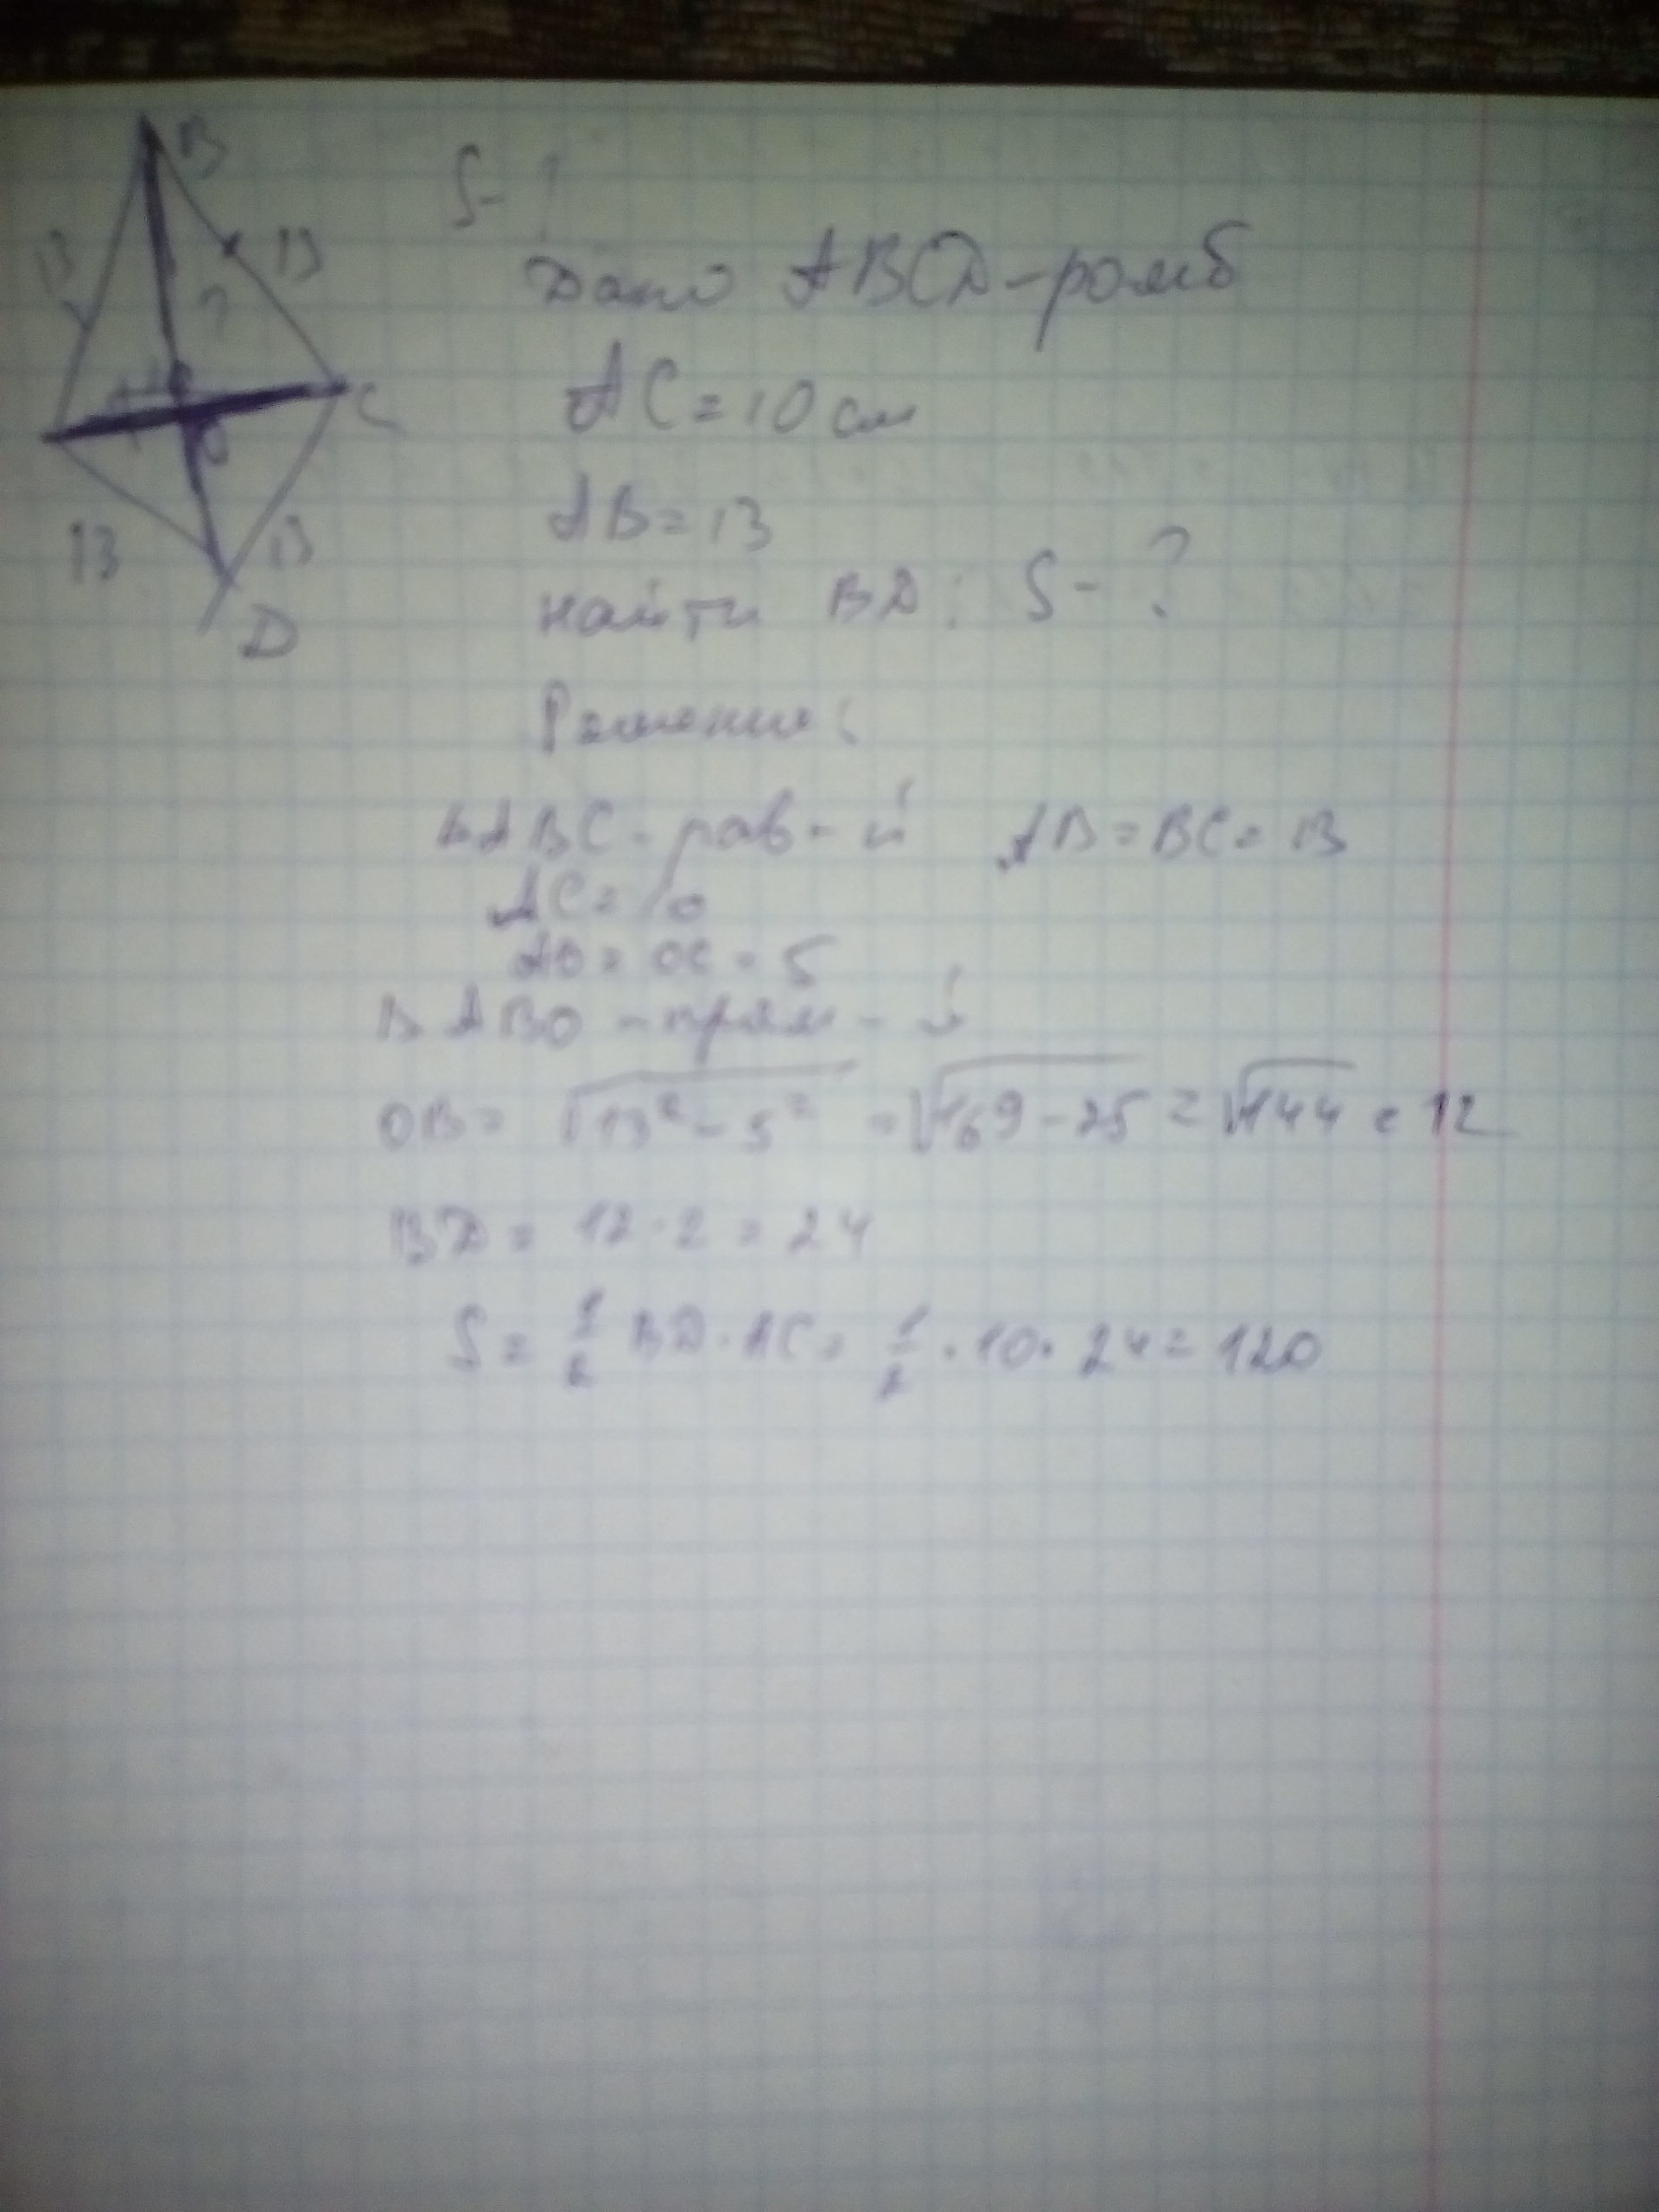 B
13
13
?
C
O
13
13
D
S-?
Дано ABCD-ромб
AC=10 см
AB=13
найти BD; S-?
Решение:
△ABC-рав-й AB=BC=13
AC=10
AO=OC=5
△ABO-прям-й
OB= √13²-5² =√169-25 =√144 =12
BD= 12·2=24
S= 1/2 BD·AC= 1/2 ·10·24=120